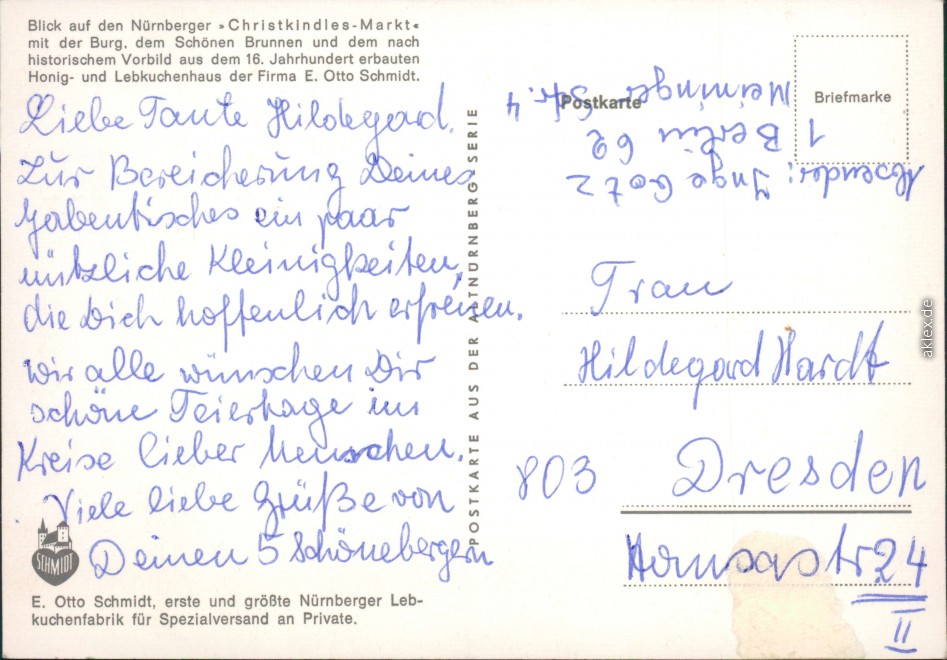 Blick auf den Nürnberger »Christkindles-Markt«
mit der Burg, dem Schönen Brunnen und dem nach
historischem Vorbild aus dem 16. Jahrhundert erbauten
Honig- und Lebkuchenhaus der Firma E. Otto Schmidt.
Liebe Tante Hildegard.
Zur Bereicherung Deines
Gabentisches ein paar
nützliche Kleinigkeiten,
die Dich hoffentlich erfreuen.
Wir alle wünschen Dir
schöne Feiertage im
Kreise lieber Menschen.
Viele liebe Grüße von
Deinen 5 Schönebergern
SCHMIDT
E. Otto Schmidt, erste und größte Nürnberger Leb-
kuchenfabrik für Spezialversand an Private.
POSTKARTE AUS DER ALTNÜRNBERG-SERIE
Postkarte
Briefmarke
Absender: Inge Gotz
1 Berlin 62
Meininger Str. 4
Frau
Hildegard Hardt
803 Dresden
Hansastr 24
II
aklex.de